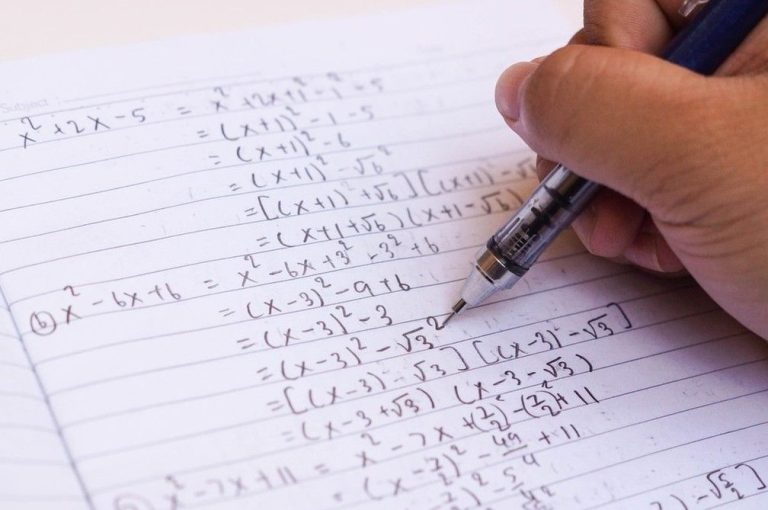 Subject
x² + 2x - 5 = x² + 2x + 1² - 1² - 5
= (x+1)² - 1 - 5
= (x+1)² - 6
= (x+1)² - √6²
= [(x+1) + √6] [(x+1) - √6
= (x+1+√6) (x+1-√6)
(b) x² - 6x + 6 = x² - 6x + 3² - 3² + 6
= (x-3)² - 9 + 6
= (x-3)² - 3
= (x-3)² - √3²
= [(x-3) - √3] [(x-3) - √3]
= (x-3+√3) (x-3-√3)
x² - 7x + 11 = x² - 7x + (7/2)² - (7/2)² + 11
= (x - 7/2)² - 49/4 + 11
7/2)² - 5/4
) - √5/2)]